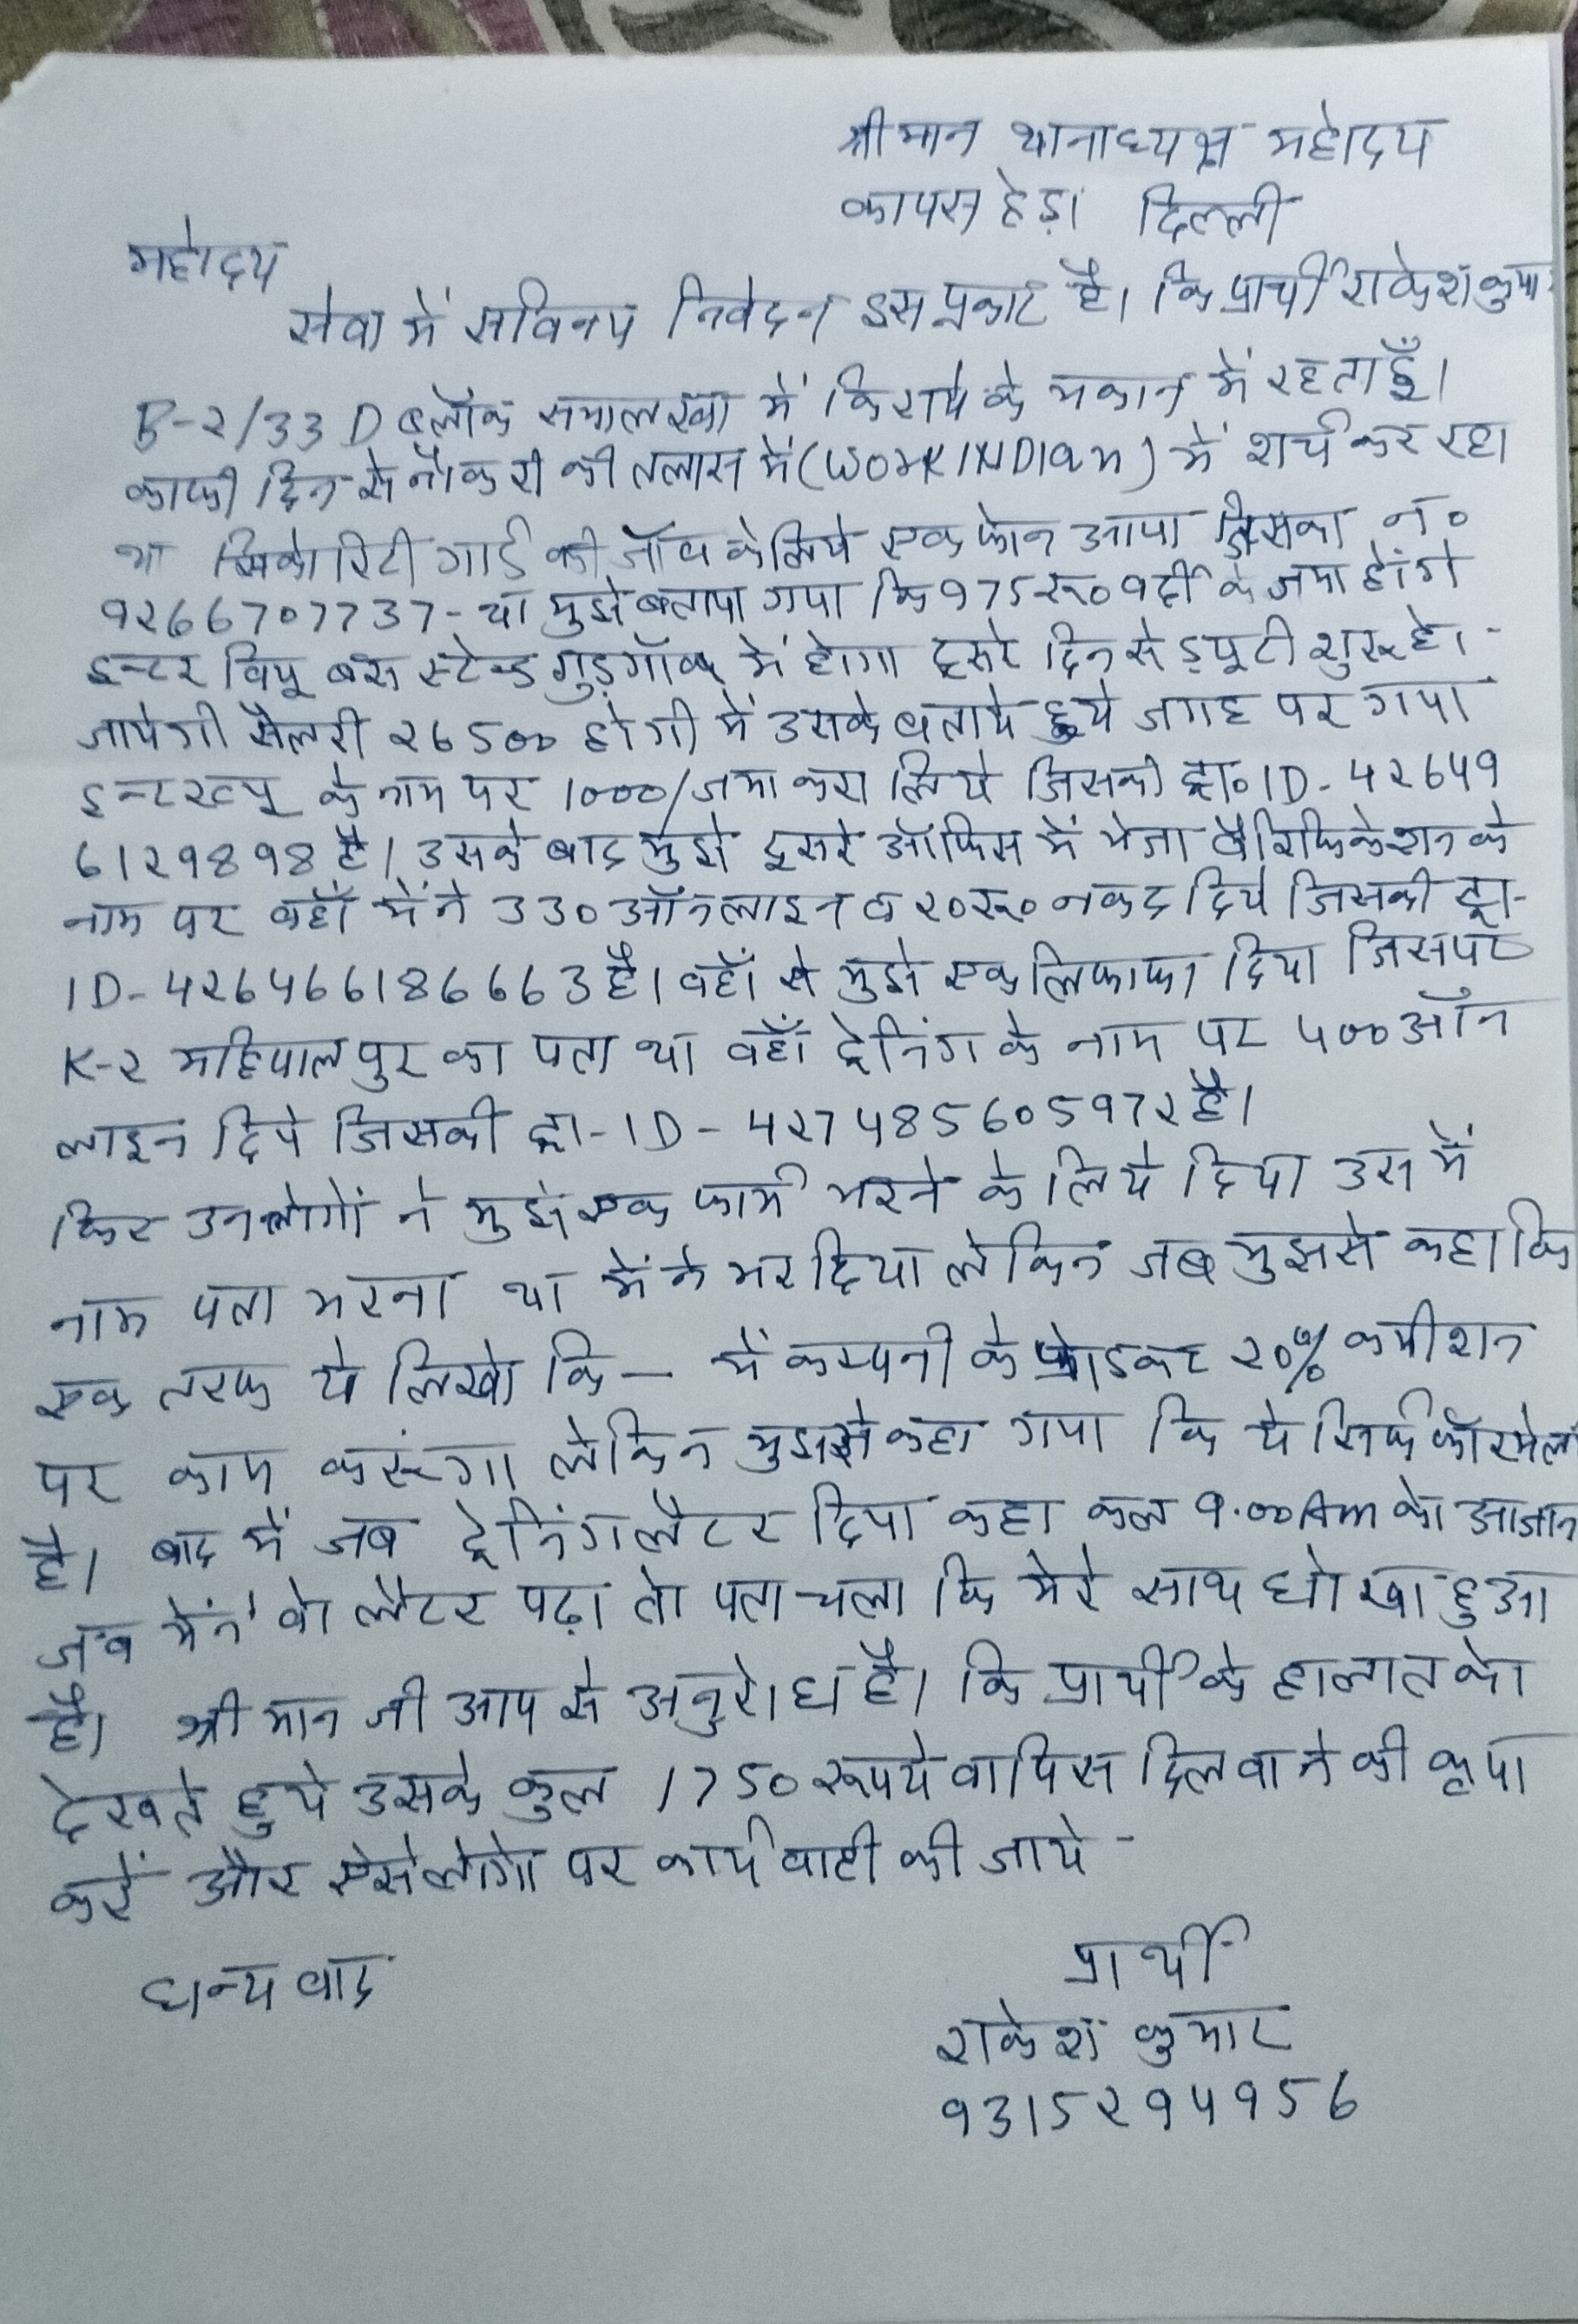 श्रीमान थानाध्यक्ष महोदय
कापस हेड़ा दिल्ली
महोदय
सेवा में सविनय निवेदन इस प्रकार है। कि प्रार्थी राकेश कुमार
B-2/33 D ब्लॉक समालखा में किराये के मकान में रहता हूँ।
काफी दिन से नौकरी की तलास में (WORKINDIAən) में शर्च कर रहा
था सिक्योरिटी गार्ड की जॉब के लिये एक फोन आया जिसका न०
9266707737- था मुझे बताया गया कि 975 रू० वर्दी के जमा होंगे
इन्टर वियू बस स्टेन्ड गुड़गाँव में होगा दूसरे दिन से ड्यूटी शुरू हो
जायेगी सैलरी 26500 होगी में उसके बताये हुये जगह पर गया
इन्टरव्यू के नाम पर 1000/ जमा करा लिये जिसकी ट्रा० ID- 42649
6129898 है। उसके बाद मुझे दूसरे ऑफिस में भेजा वैरिफिकेशन के
नाम पर वहाँ मेंने 330 ऑनलाइन व 20 रू० नकद दिये जिसकी ट्रा-
ID- 426466186663 है। वहाँ से मुझे एक लिफाफा दिया जिसपर
K-2 महिपालपुर का पता था वहाँ ट्रेनिंग के नाम पर 400 ऑन
लाइन दिये जिसकी ट्रा- ID- 427485605972 है।
फिर उनलोगों ने मुझे एक फार्म भरने के लिये दिया उस में
नाम पता भरना था मेंने भर दिया लेकिन जब मुझसे कहा कि
एक तरफ ये लिखो कि — में कम्पनी के प्रोडकट 20% कमीशन
पर काम करूंगा लेकिन मुझसे कहा गया कि ये सिर्फ फॉरमेलटी
है। बाद में जब ट्रेनिंग लैटर दिया कहा कल 9.00 Am को आजाना
जब मेंने वो लैटर पढ़ा तो पता चला कि मेरे साथ धोखा हुआ
है। श्री मान जी आप से अनुरोध है। कि प्रार्थी के हालात को
देखते हुये उसके कुल 1750 रूपये वापिस दिलवाने की कृपा
करें और ऐसे लोगो पर कार्यवाही की जाये
धन्यवाद
प्रार्थी
राकेश कुमार
9315294956